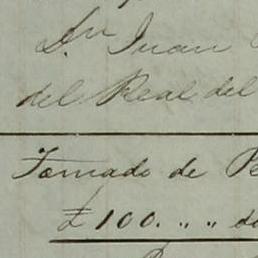 Dn. Juan
del Real del
Tomado de
£ 100. „ „ d